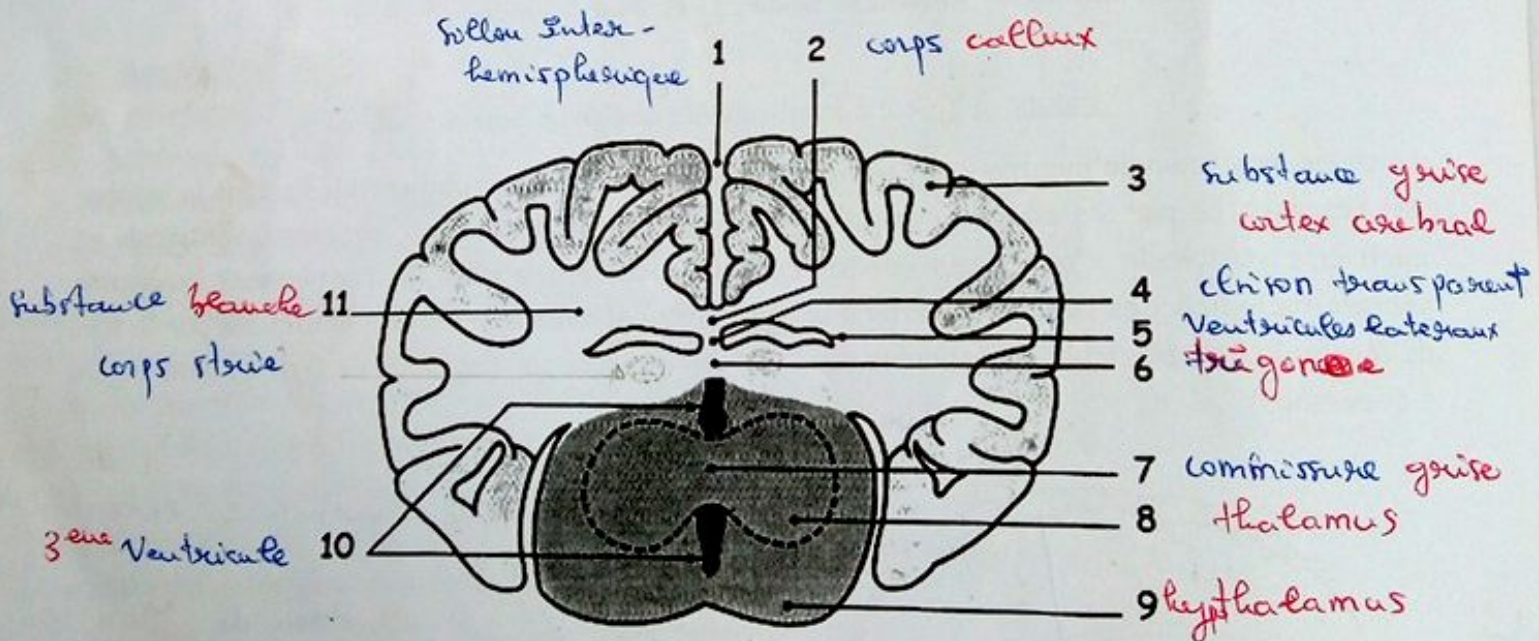 sillon inter-
hemispherique
1
2 corps calleux
3 substance grise
cortex cerebral
4 cloison transparent
5 ventricules lateraux
6 trigone
7 commissure grise
8 thalamus
9 hypthalamus
substance blanche 11
corps strié
3eme Ventricule 10